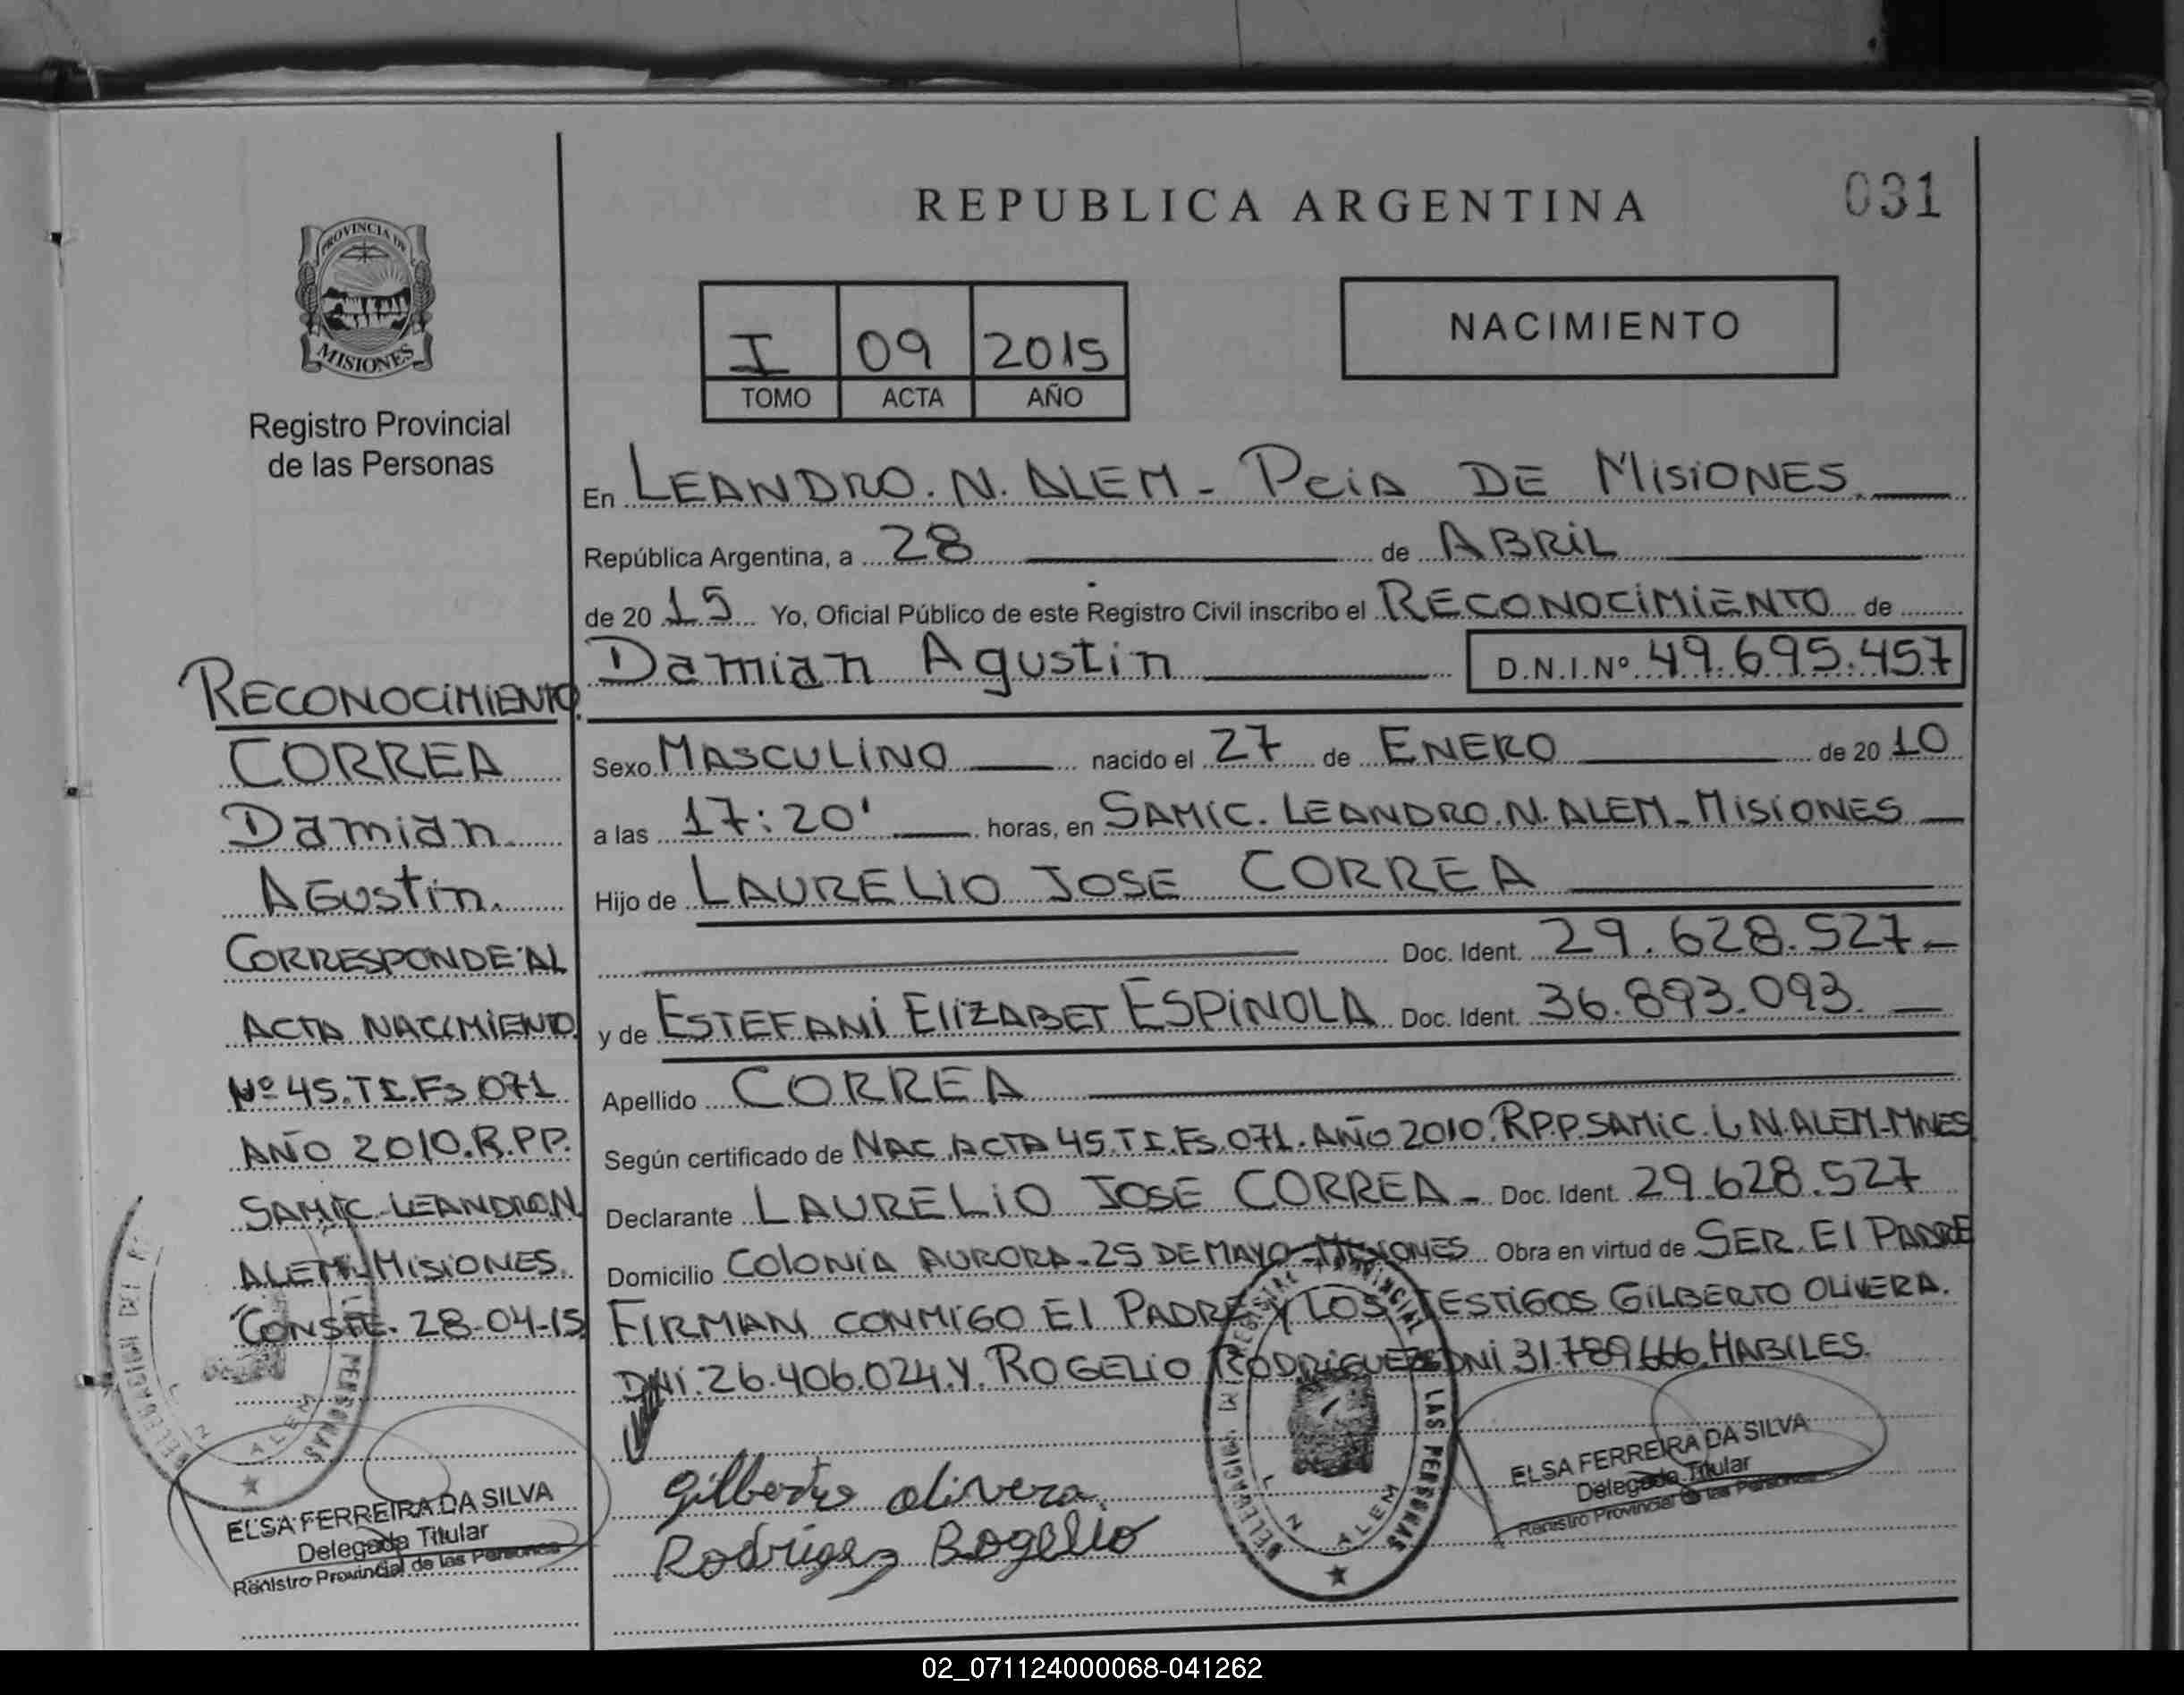 REPUBLICA ARGENTINA
031
PROVINCIA DE
MISIONES
Registro Provincial
de las Personas
I 09 2015
TOMO ACTA AÑO
NACIMIENTO
En LEANDRO. N. ALEM - PciA DE MISIONES.
República Argentina, a 28 de ABRIL
de 20 15 Yo, Oficial Público de este Registro Civil inscribo el RECONOCIMIENTO de
Damian Agustin D.N.I.Nº 49.695.457
Sexo MASCULINO nacido el 27 de ENERO de 20 10
a las 17:20' horas, en SAMIC. LEANDRO. N. ALEM - MISIONES
Hijo de LAURELIO JOSE CORREA
Doc. Ident. 29.628.527-
y de ESTEFANI ElIZABET ESPINOLA Doc. Ident. 36.893.093.
Apellido CORREA
Según certificado de NAC ACTA 45.T I.Fs.071. AÑO 2010. RPP.SAMIC. L N. ALEM-MNES
Declarante LAURELIO JOSE CORREA - Doc. Ident. 29.628.527
Domicilio COLONIA AURORA - 25 DE MAYO - MISIONES Obra en virtud de SER El PADRE
FIRMAN CONMIGO El PADRE Y LOS TESTIGOS GILBERTO OLIVERA.
DNI: 26.406.024.Y. ROGELIO RODRIGUEZ DNI 31.789.666. HABILES.
Gilberto olivera
Rodrigez Rogelio
DELEGACION DEL REGISTRO PROVINCIAL DE LAS PERSONAS
L N ALEM
ELSA FERREIRA DA SILVA
Delegada Titular
Registro Provincial de las Personas
RECONOCIMIENTO.
CORREA
Damian
AGustin.
CORRESPONDE AL
ACTA NACIMIENTO.
Nº 45.T I.Fs 071
AÑO 2010.R.PP.
SAMIC-LEANDRO N
ALEM-MISIONES.
CONSTE. 28-04-15
PERSONAS
L N ALEM
ELSA FERREIRA DA SILVA
Delegada Titular
Registro Provincial de las Personas
02_071124000068-041262